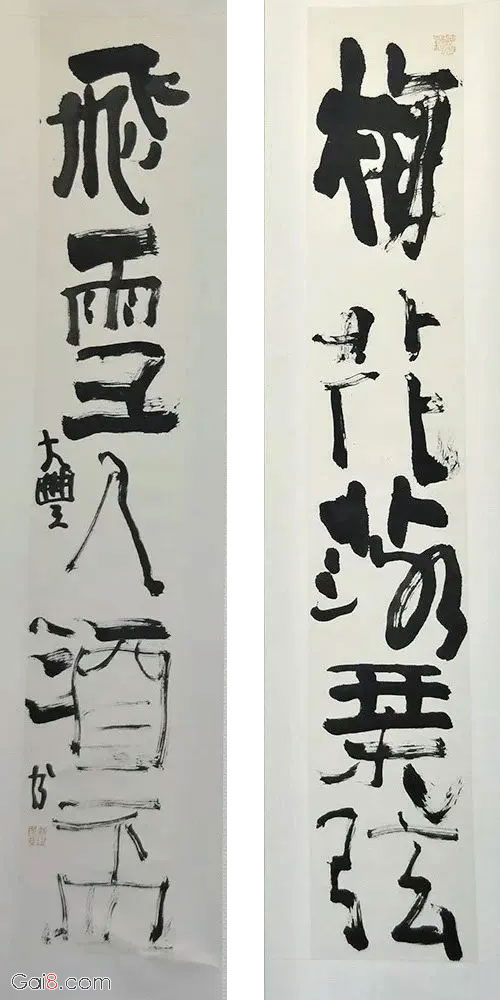 梅花落琴弦
飛雪入酒
大豐
书
Gai8.com